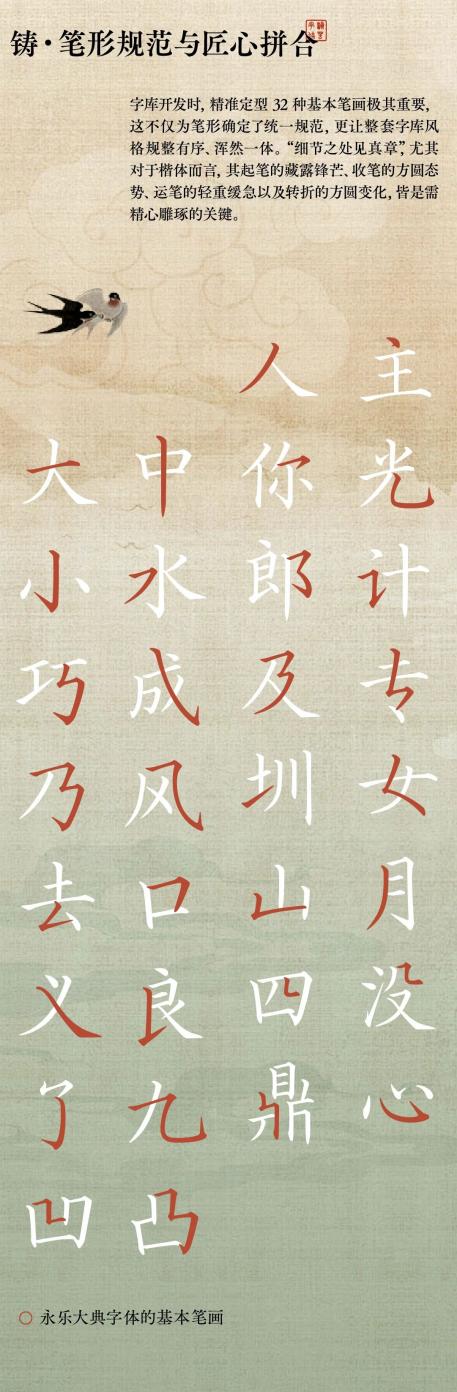 铸·笔形规范与匠心拼合
字库开发时, 精准定型 32 种基本笔画极其重要,
这不仅为笔形确定了统一规范, 更让整套字库风
格规整有序、浑然一体。“细节之处见真章”, 尤其
对于楷体而言, 其起笔的藏露锋芒、收笔的方圆态
势、运笔的轻重缓急以及转折的方圆变化, 皆是需
精心雕琢的关键。
人 主
大 中 你 光
小 水 郎 计
巧 成 及 专
乃 风 圳 女
去 口 山 月
义 良 四 没
了 九 鼎 心
凹 凸
永乐大典字体的基本笔画